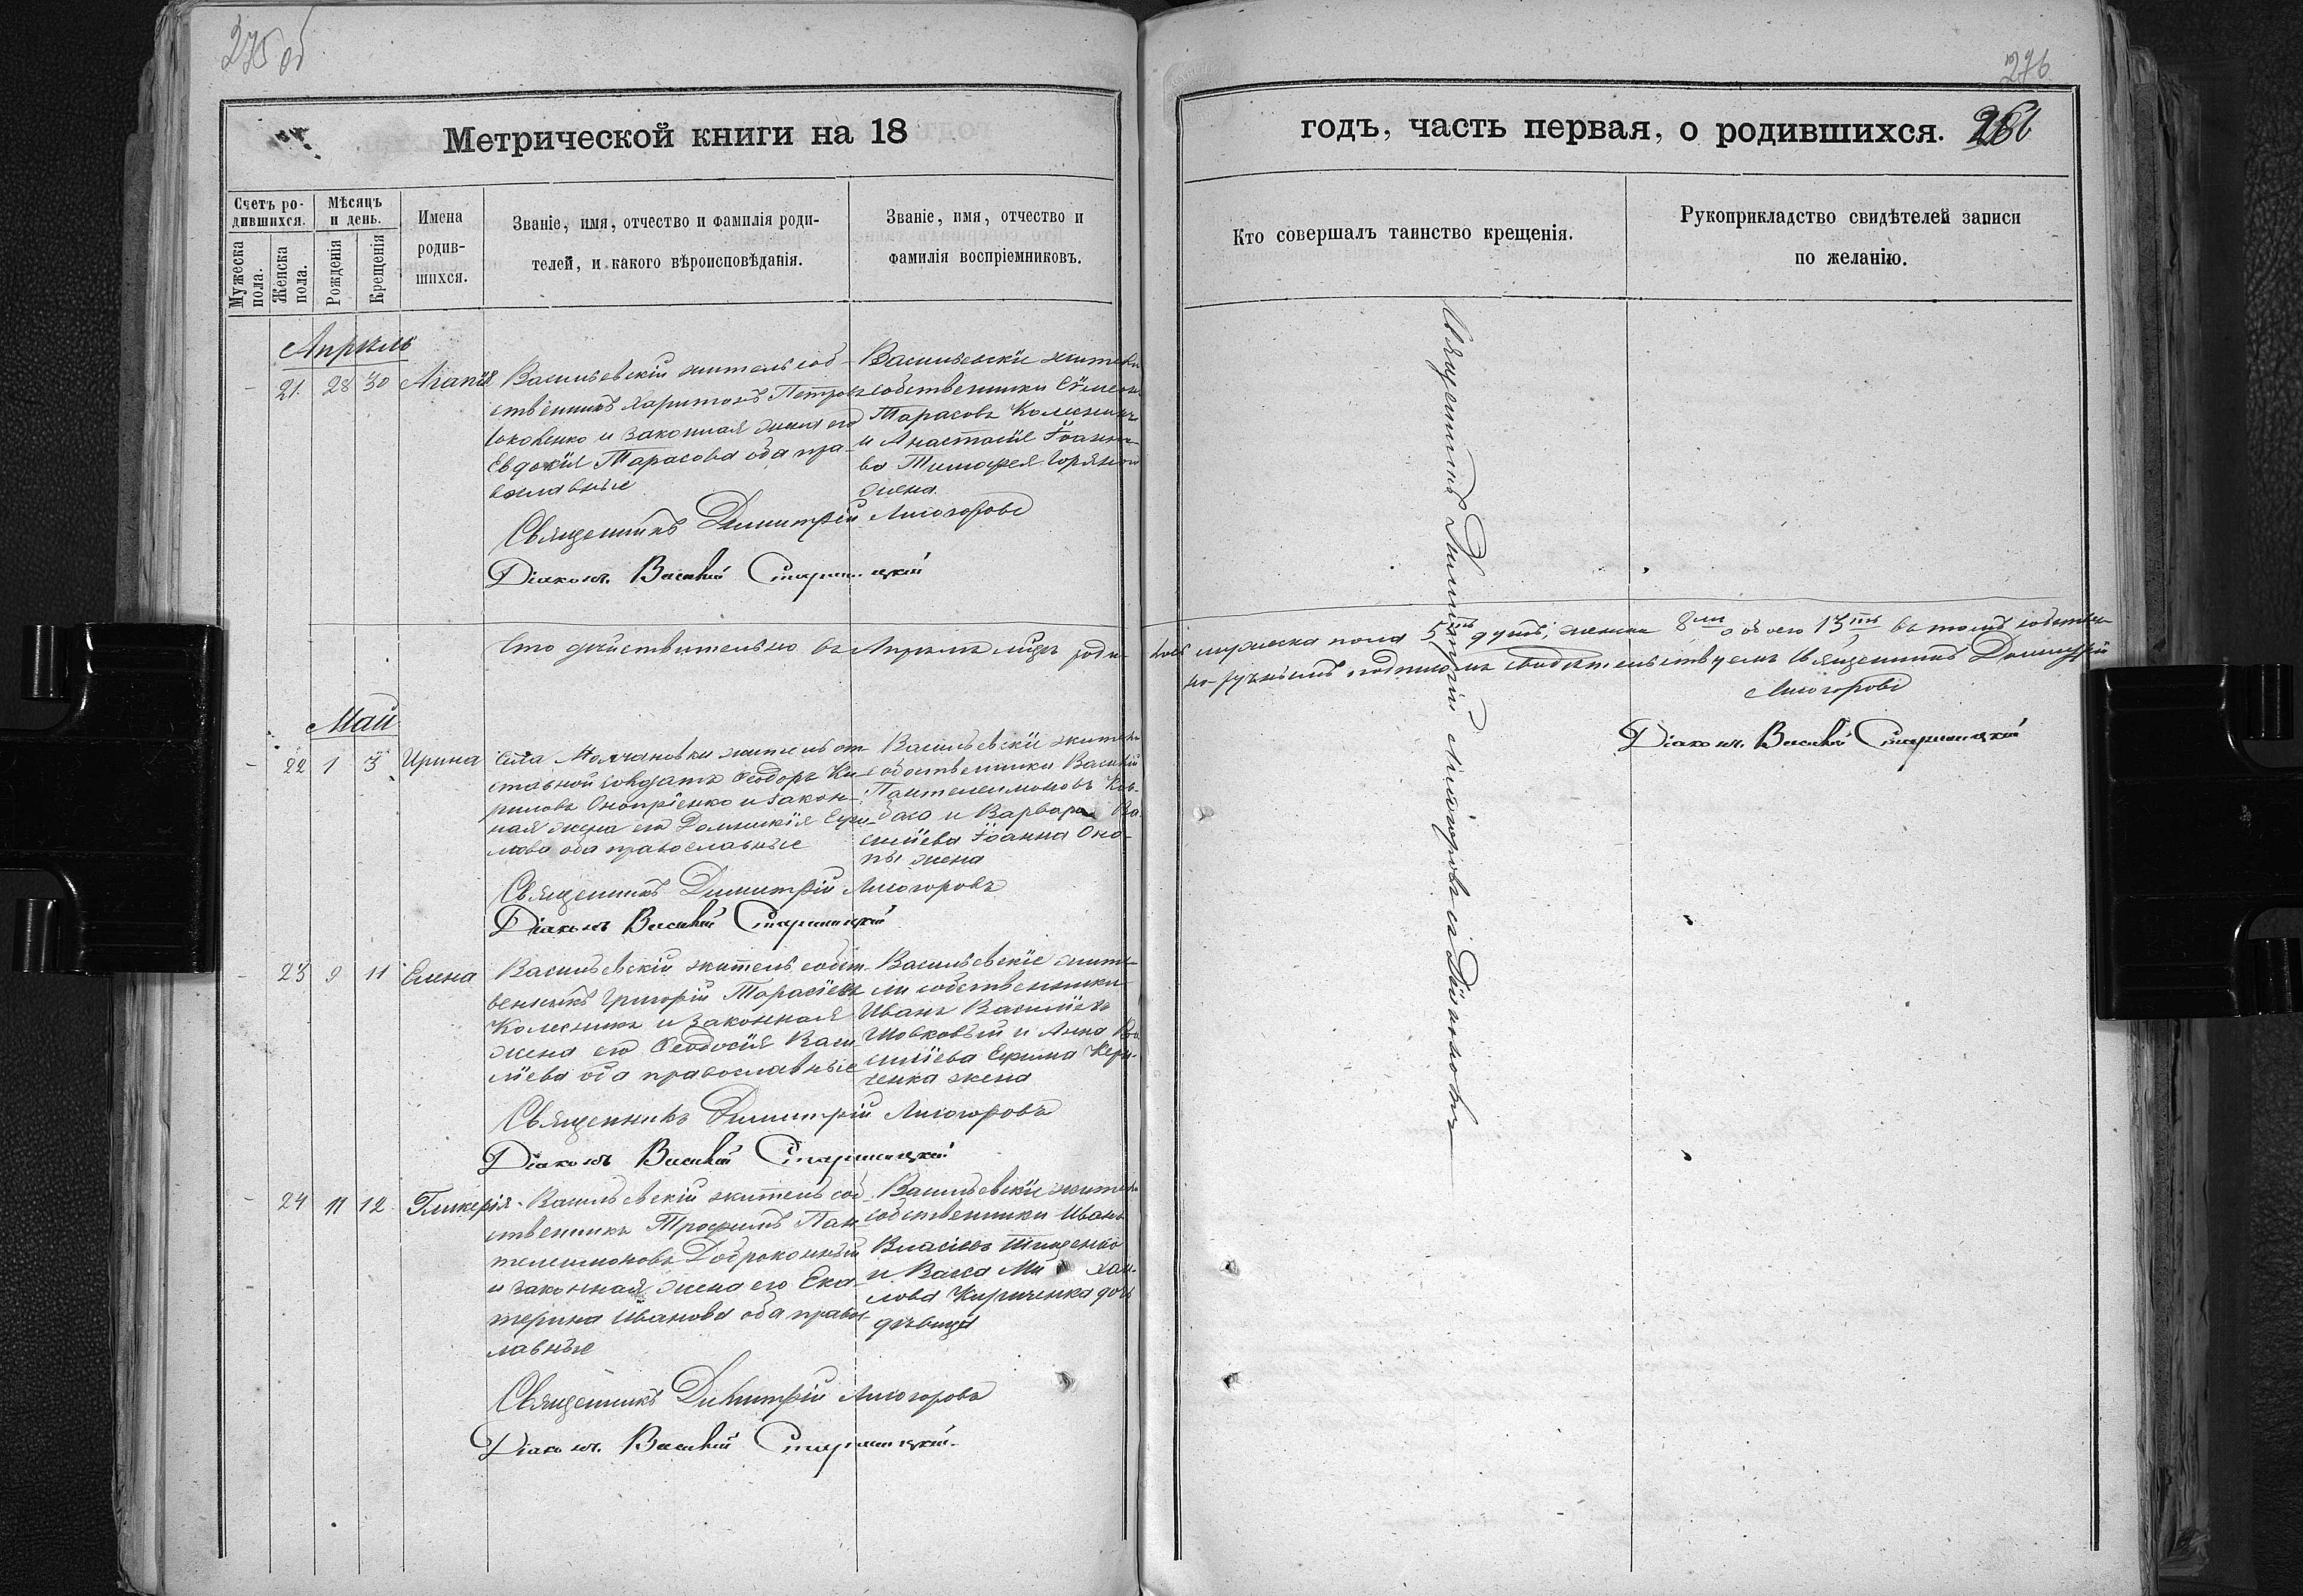 275 об
276
Метрической книги на 18
годъ, часть первая, о родившихся.
Счетъ ро-
дившихся.
Мѣсяцъ
и день.
Имена
родив-
шихся.
Званіе, имя, отчество и фамилія роди-
телей, и какого вѣроисповѣданія.
Званіе, имя, отчество и
фамилія воспріемниковъ.
Мужеска
пола.
Женска
пола.
Рожденія
Крещенія
Кто совершалъ таинство крещенія.
Рукоприкладство свидѣтелей записи
по желанію.
Апрѣль
- 21. 28 30 Агапія
Васильевскій житель соб-
ственникъ Харитонъ Петровъ
и законная жена его
Евдокія Тарасова оба пра-
вославные
Васильевскіе жители
собственники Сѵмеонъ
Тарасовъ Колесникъ
и Анастасія Іоанно-
ва Тимофея
жена.
Священникъ Димитрій Лисогоровъ
Діаконъ Василій Старицкій
Что дѣйствительно въ Апрѣлѣ м-цѣ роди-
лось мужеска пола 5ть душъ, женска 8мь а обоего 13ть въ томъ собствен-
но-ручнымъ подписомъ свидѣтельствуемъ Священникъ Димитрій
Лисогоровъ
Діаконъ Василій Старицкій
Май
- 22 1 3 Ирина
Села Молчановки житель от-
ставной солдатъ Ѳеодоръ Ки-
риловъ Онопріенко и закон-
ная жена его Домникія Еѳи-
мова оба православные
Васильевскіе жители
собственники Василій
Пантелеимоновъ Ков-
баса и Варвара Ва-
силіева Іоанна Оно-
пы жена
Священникъ Димитрій Лисогоровъ
Діаконъ Василій Старицкій
- 23 9 11 Елена
Васильевскій житель собст-
венникъ Григорій Тарасіевъ
Колесникъ и законная
жена его Ѳеодосія Васи-
ліева оба православные
Васильевскіе жите-
ли собственники
Иванъ Василіевъ
Шовковый и Анна Ва-
силіева Ефима Кери-
ченка жена
Священникъ Димитрій Лисогоровъ
Діаконъ Василій Старицкій
- 24 11 12. Гликерія.
Васильевскій житель соб-
ственникъ Трофимъ Пан-
телеимоновъ Доброконный
и законная жена его Ека-
терина Иванова оба правос-
лавные
Васильевскіе жители
собственники Иванъ
Власіевъ Тищенко
и Васса Михаи-
лова Кириченка дочь
дѣвица
Священникъ Димитрій Лисогоровъ
Діаконъ Василій Старицкій
Священникъ Димитрій Лисогоровъ съ Діакономъ